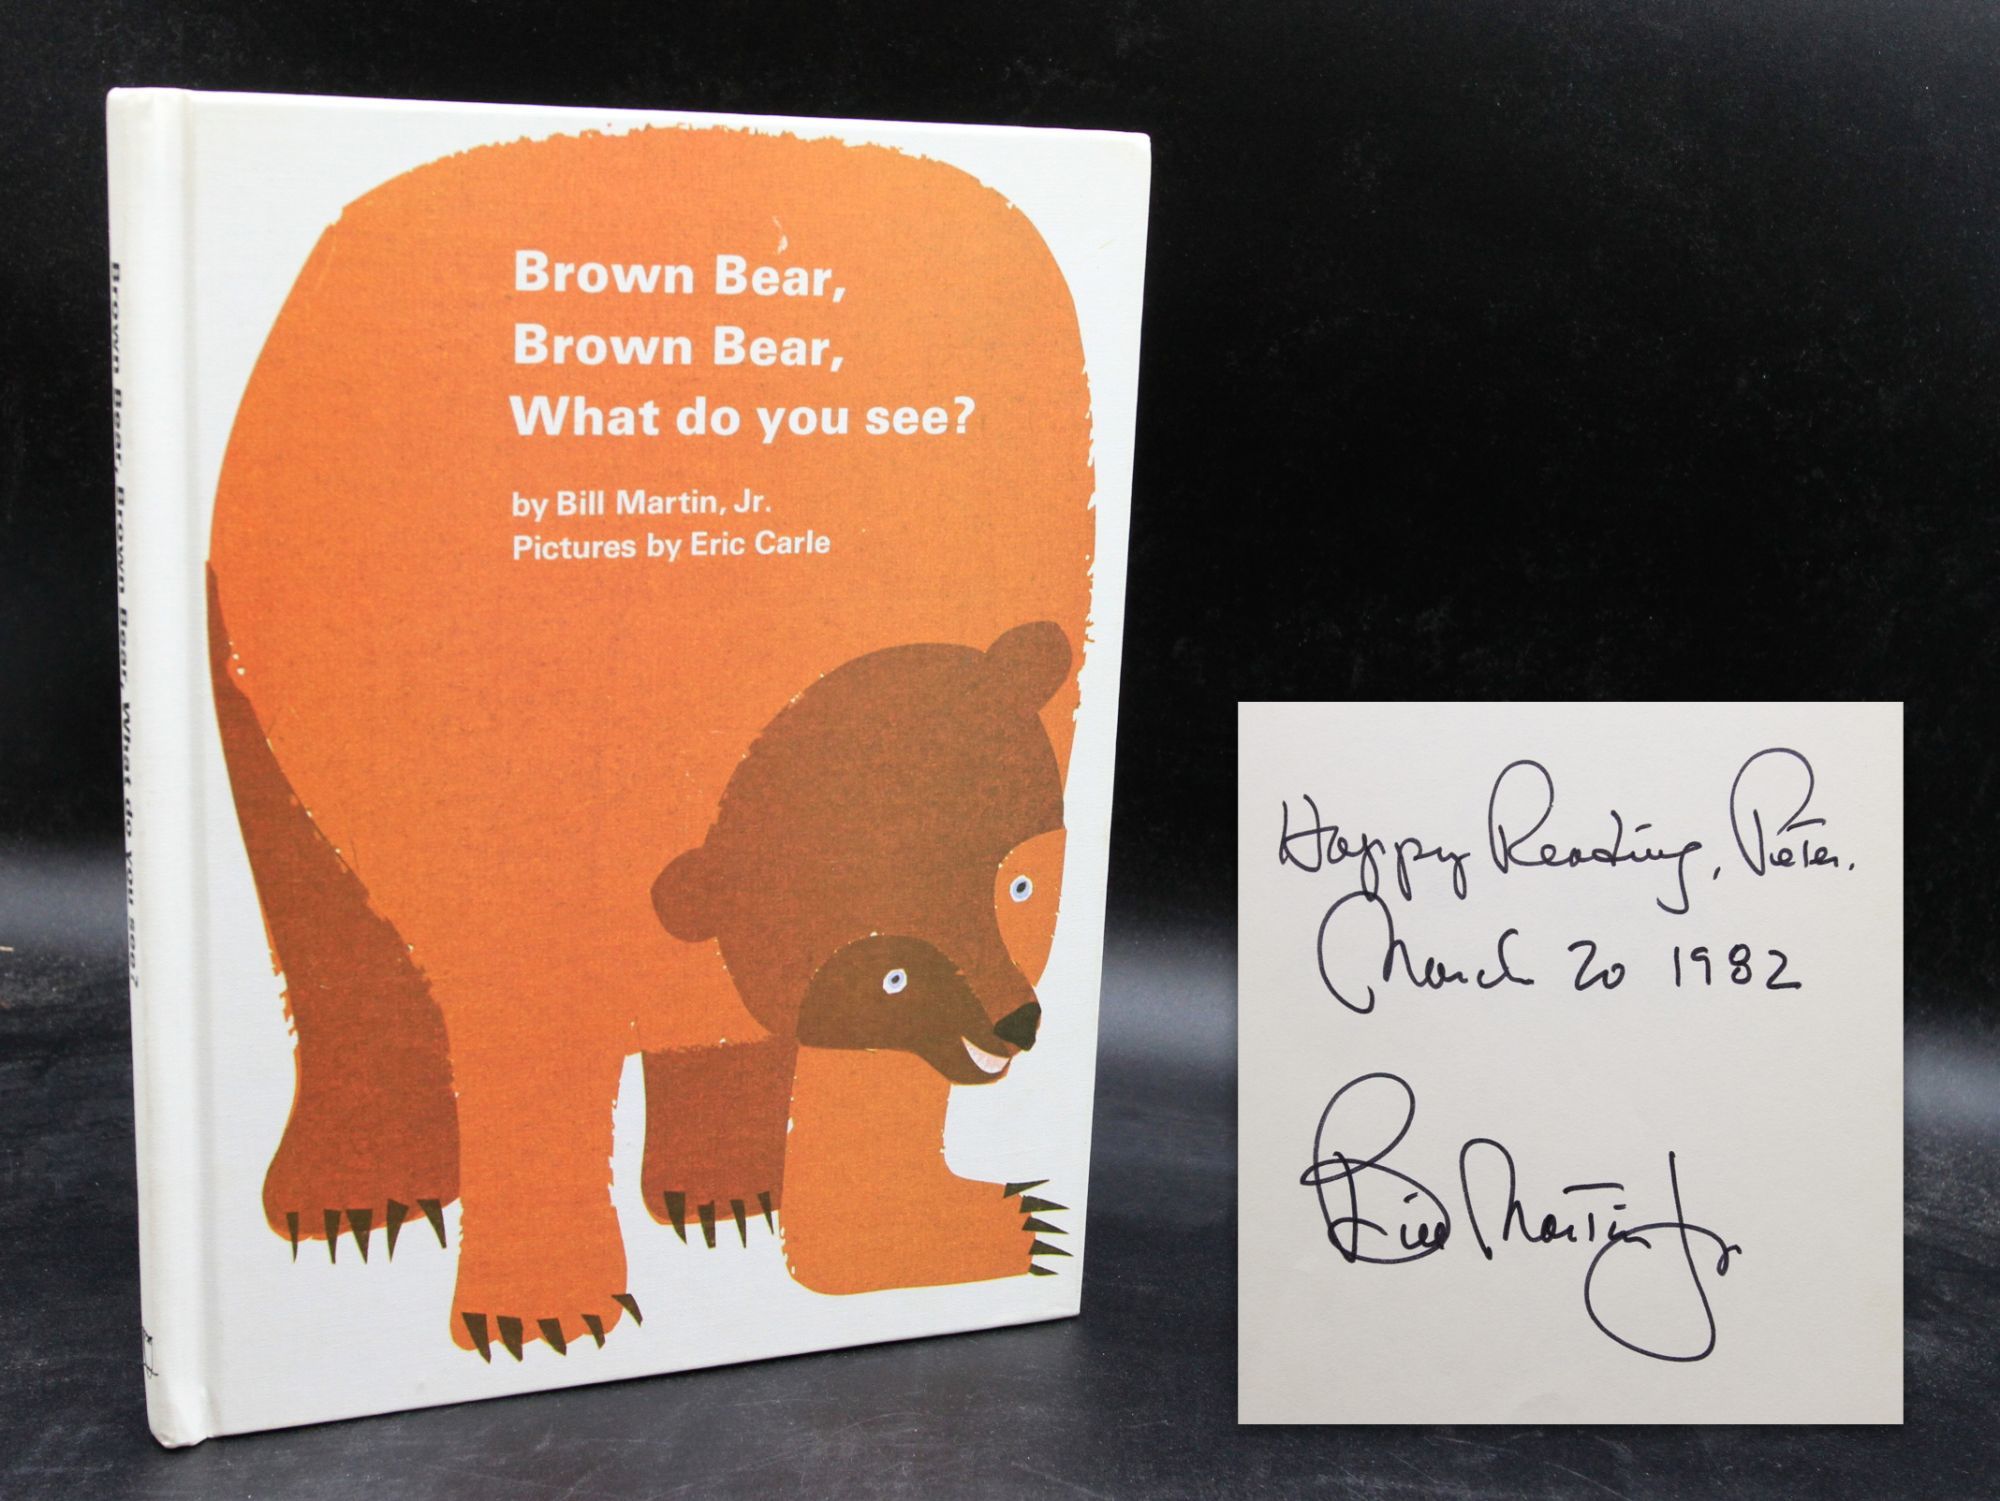 Brown Bear,
Brown Bear,
What do you see?
by Bill Martin, Jr.
Pictures by Eric Carle
Brown Bear, Brown Bear, What do you see?
Happy Reading, Pieter.
March 20 1982
Bill Martin Jr